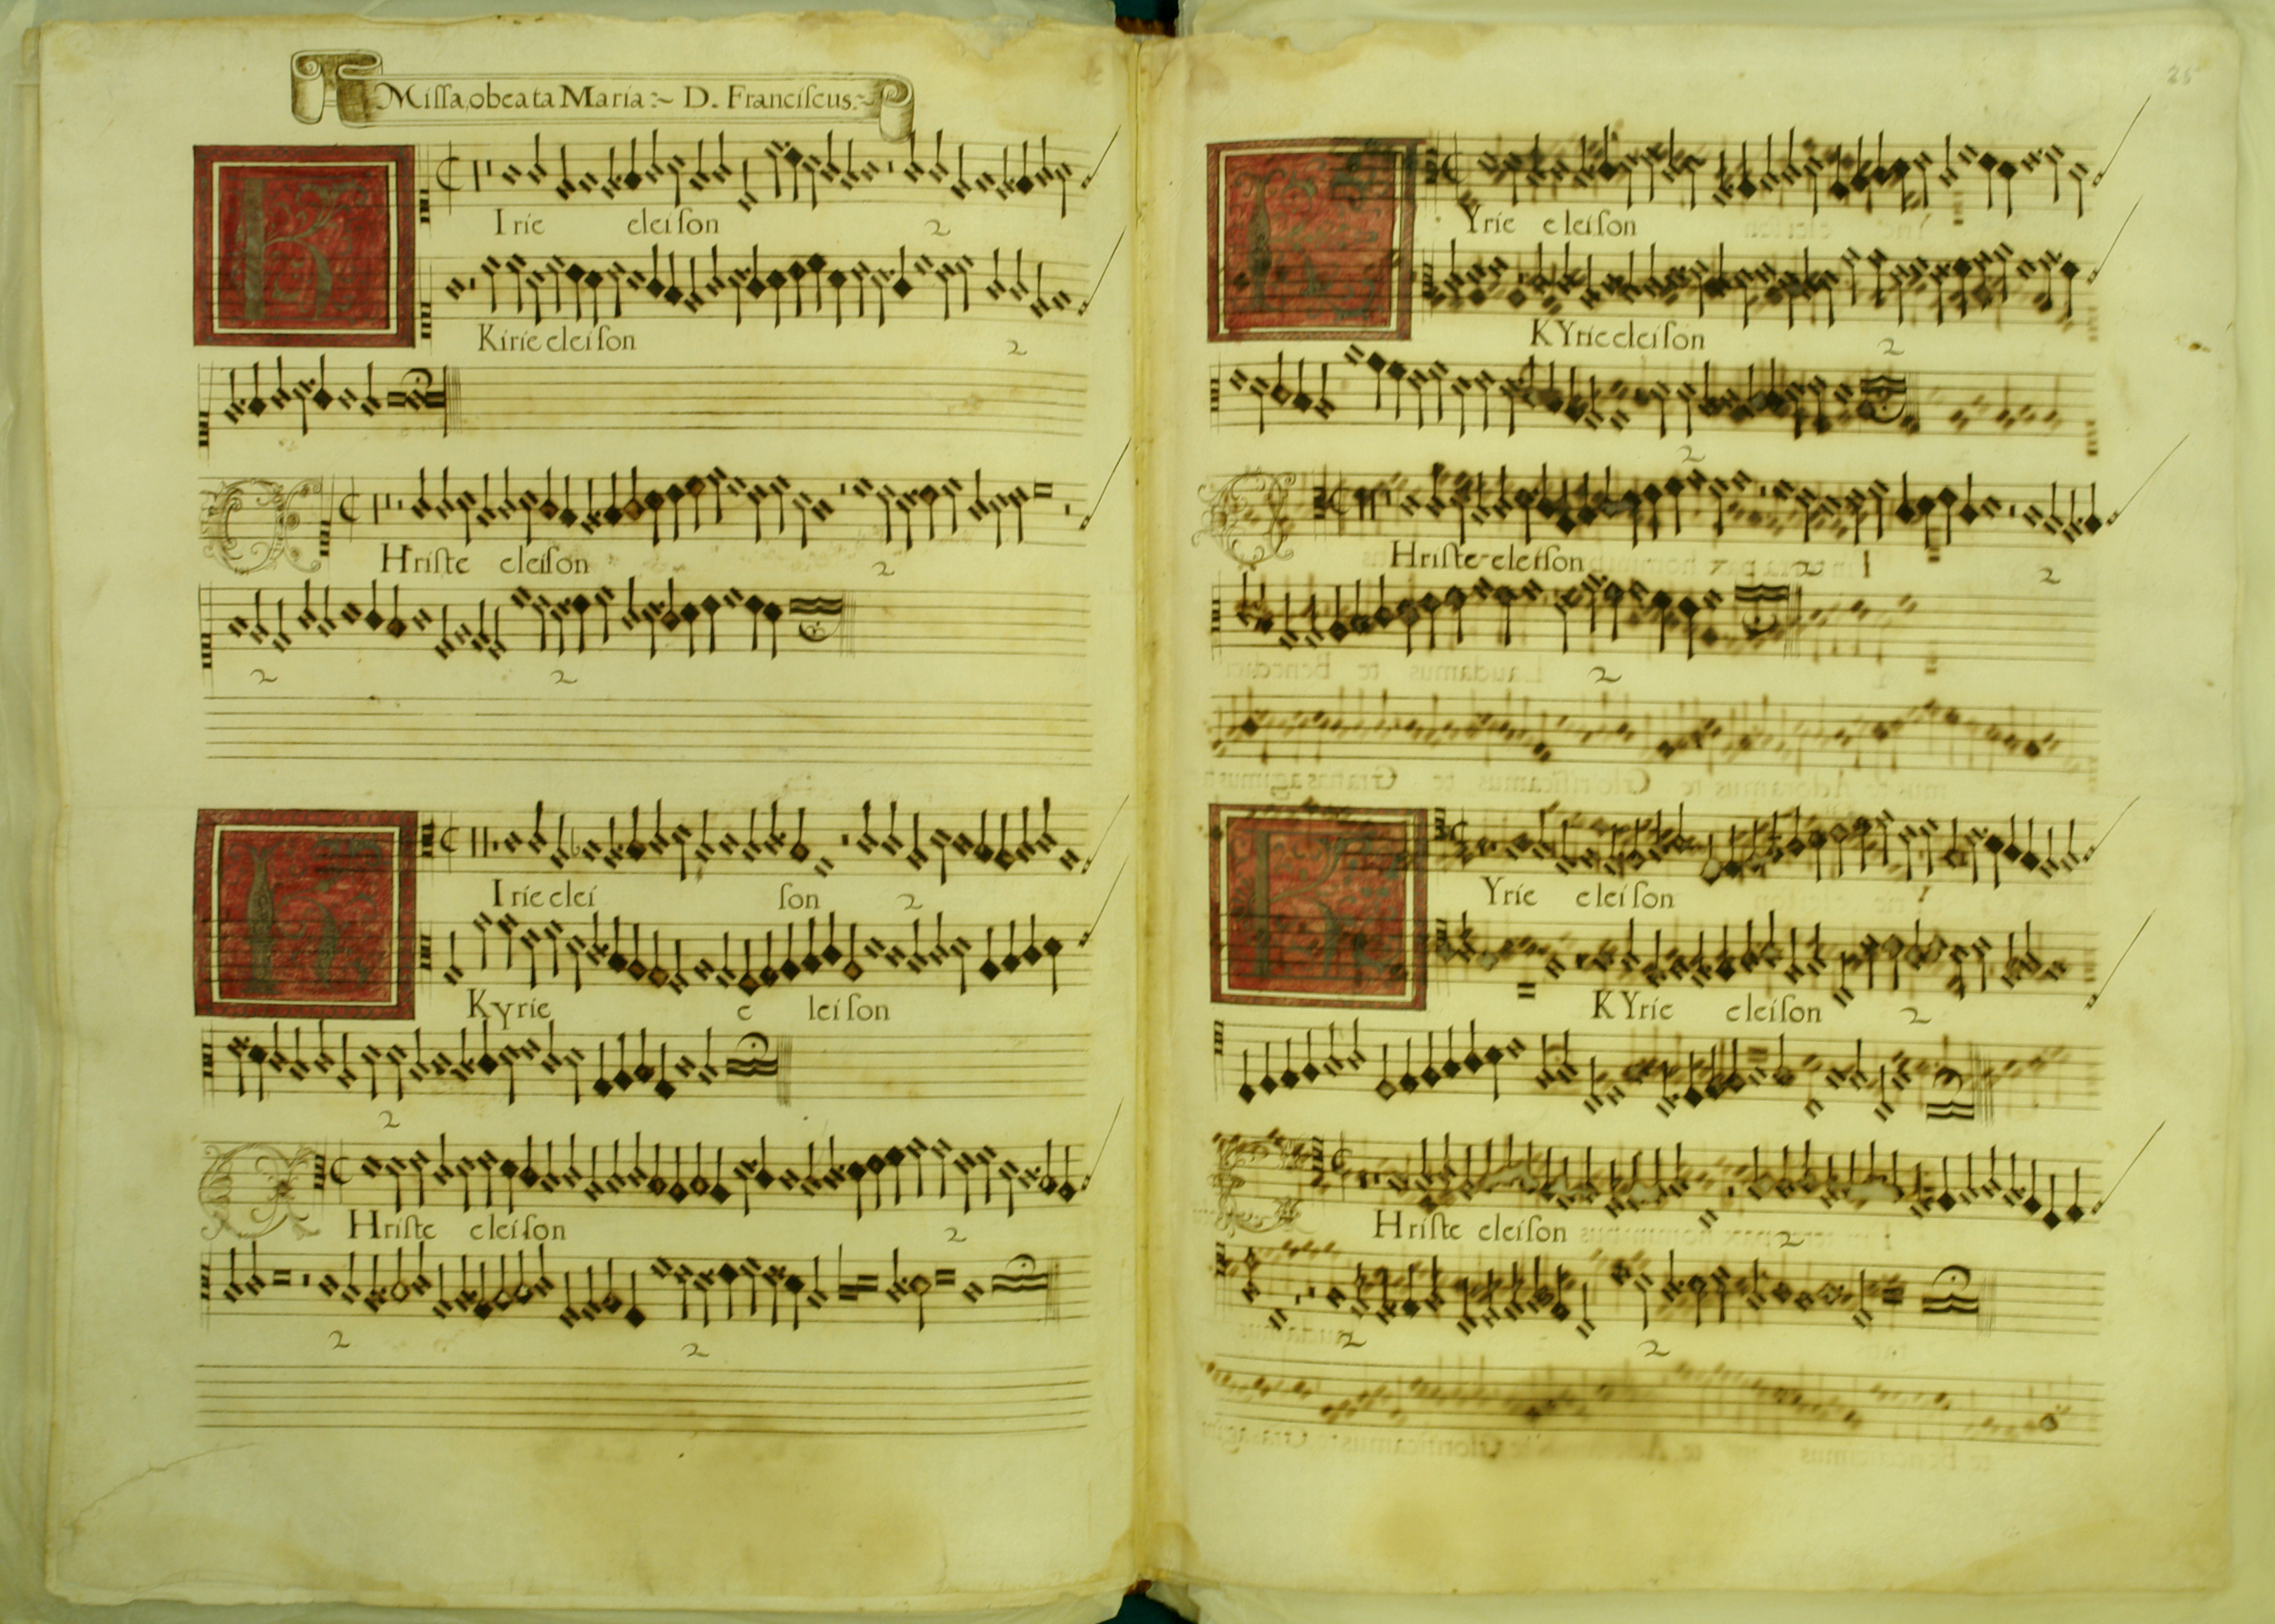 Miſſa, o beata Maria :~ D. Franciſcus :~
K Irie eleiſon 2
Kirie eleiſon 2
C Hriſte eleiſon 2
2 2
K Irie elei ſon 2
Kyrie e leiſon
2
C Hriſte eleiſon 2
2 2
K Yrie eleiſon
KYrie eleiſon 2
2
C Hriſte eleiſon 2
2
K Yrie eleiſon
KYrie eleiſon 2
C Hriſte eleiſon 2
2 2